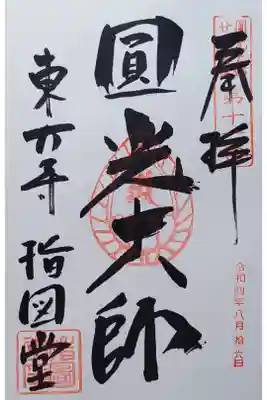 奉拝
圓光大師
東大寺 指図堂
令和四年八月拾六日